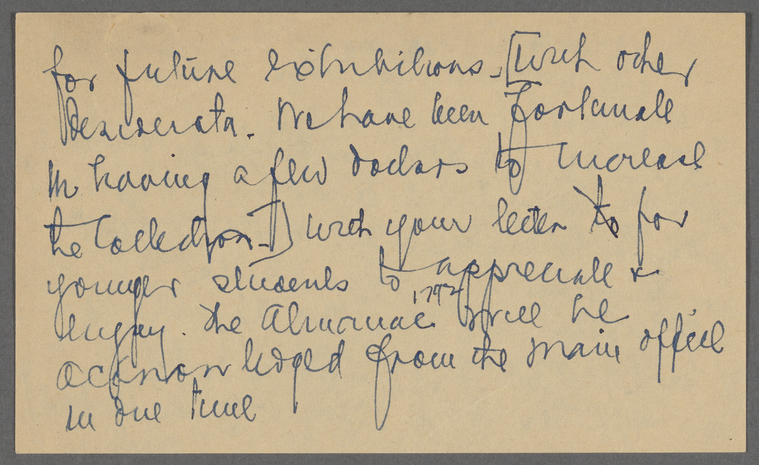 for future exhibitions. [With other
desiderata. We have been fortunate
in having a few dollars to increase
the Collection.] With your letter to for
younger students to appreciate &
enjoy. The Almanac 1792 will be
acknowledged from the main office
in due time